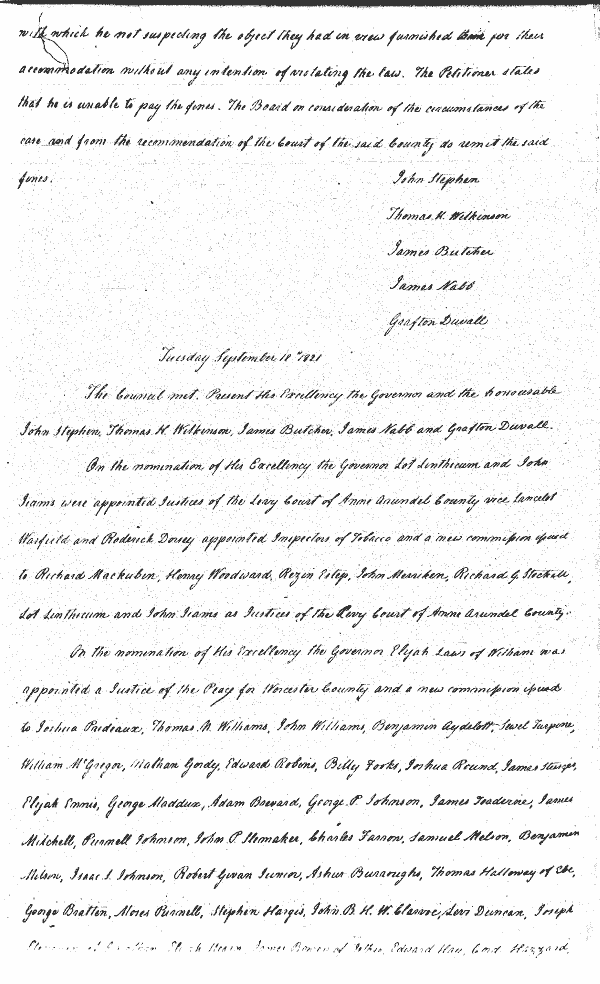 with which he not suspecting the object they had in view furnished them for their
accommodation without any intention of violating the law. The Petitioner states
that he is unable to pay the fines. The Board on consideration of the circumstances of the
case and from the recommendation of the Court of the said County do remit the said
fines.
John Stephen
Thomas H. Wilkinson
James Butcher
James Nabb
Grafton Duvall
Tuesday September 18th 1821
The Council met. Present His Excellency the Governor and the honourable
John Stephen, Thomas H. Wilkinson, James Butcher, James Nabb and Grafton Duvall.
On the nomination of His Excellency the Governor Lot Linthicum and John
Iiams were appointed Justices of the Levy Court of Anne Arundel County vice Lancelot
Warfield and Roderick Dorsey appointed Inspectors of Tobacco and a new commission issued
to Richard Mackubin, Henry Woodward, Rezin Estep, John Merriken, Richard G. Stockett,
Lot Linthicum and John Iiams as Justices of the Levy Court of Anne Arundel County.
On the nomination of His Excellency the Governor Elijah Laws of William was
appointed a Justice of the Peace for Worcester County and a new commission issued
to Joshua Prideaux, Thomas N. Williams, John Williams, Benjamin Aydelott, Sewel Turpine,
William McGregor, Nathan Gordy, Edward Robins, Billy Fooks, Joshua Round, James Sturgis,
Elijah Ennis, George Maddux, Adam Brevard, George P. Johnson, James Toadvine, James
Mitchell, Purnell Johnson, John P. Slemaker, Charles Farrow, Samuel Melson, Benjamin
Melson, Isaac S. Johnson, Robert Givan Junior, Ashur Burroughs, Thomas Holloway of Ebe,
George Bratten, Moses Purnell, Stephen Hargis, John B. H. W. Clarvoe, Levi Duncan, Joseph
of Elijah Hearn, James Bowen of Edward Hazzard,